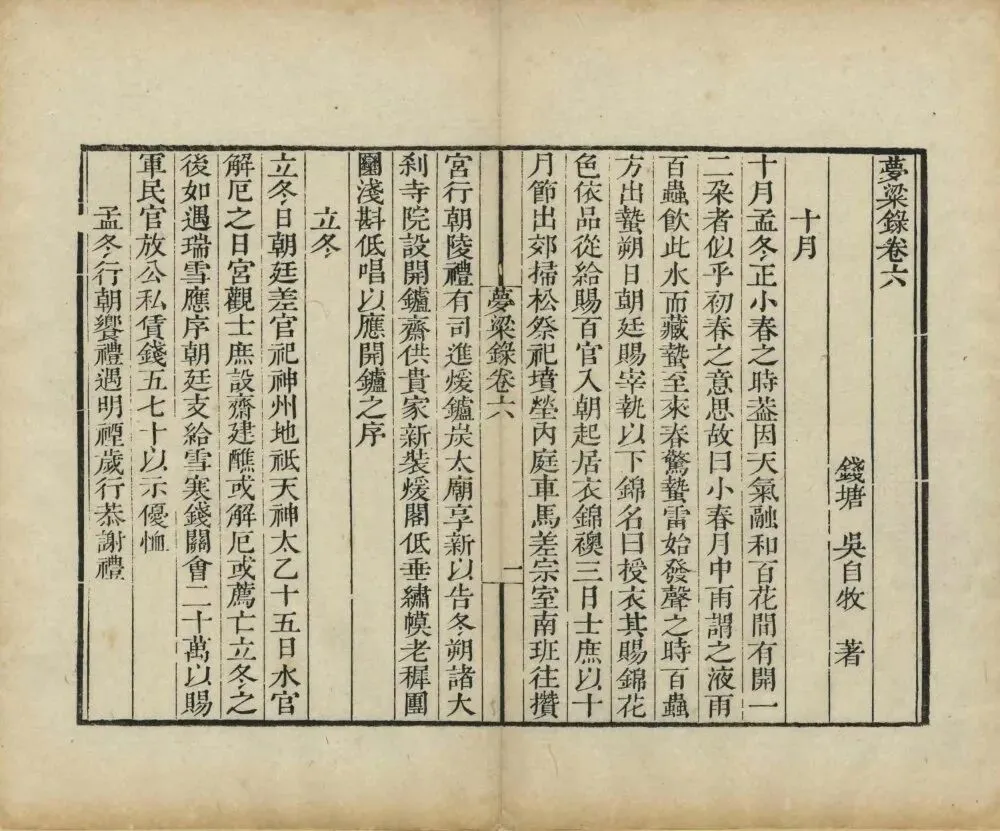 夢粱錄卷六
錢塘　吳自牧　著
十月
十月孟冬正小春之時葢因天氣融和百花間有開一
二朶者似乎初春之意思故曰小春月中雨謂之液雨
百蟲飮此水而藏蟄至來春驚蟄雷始發聲之時百蟲
方出蟄朔日朝廷賜宰執以下錦名曰授衣其賜錦花
色依品從給賜百官入朝起居衣錦襖三日士庶以十
月節出郊掃松祭祀墳塋內庭車馬差宗室南班往攢
夢粱錄卷六
一
宮行朝陵禮有司進煖鑪炭太廟享新以告冬朔諸大
刹寺院設開鑪齋供貴家新裝煖閣低垂繡幙老穉團
圞淺斟低唱以應開鑪之序
立冬
立冬日朝廷差官祀神州地祇天神太乙十五日水官
解厄之日宮觀士庶設齋建醮或解厄或薦亡立冬之
後如遇瑞雪應序朝廷支給雪寒錢關會二十萬以賜
軍民官放公私賃錢五七十以示優恤
孟冬行朝饗禮遇明禋歲行恭謝禮